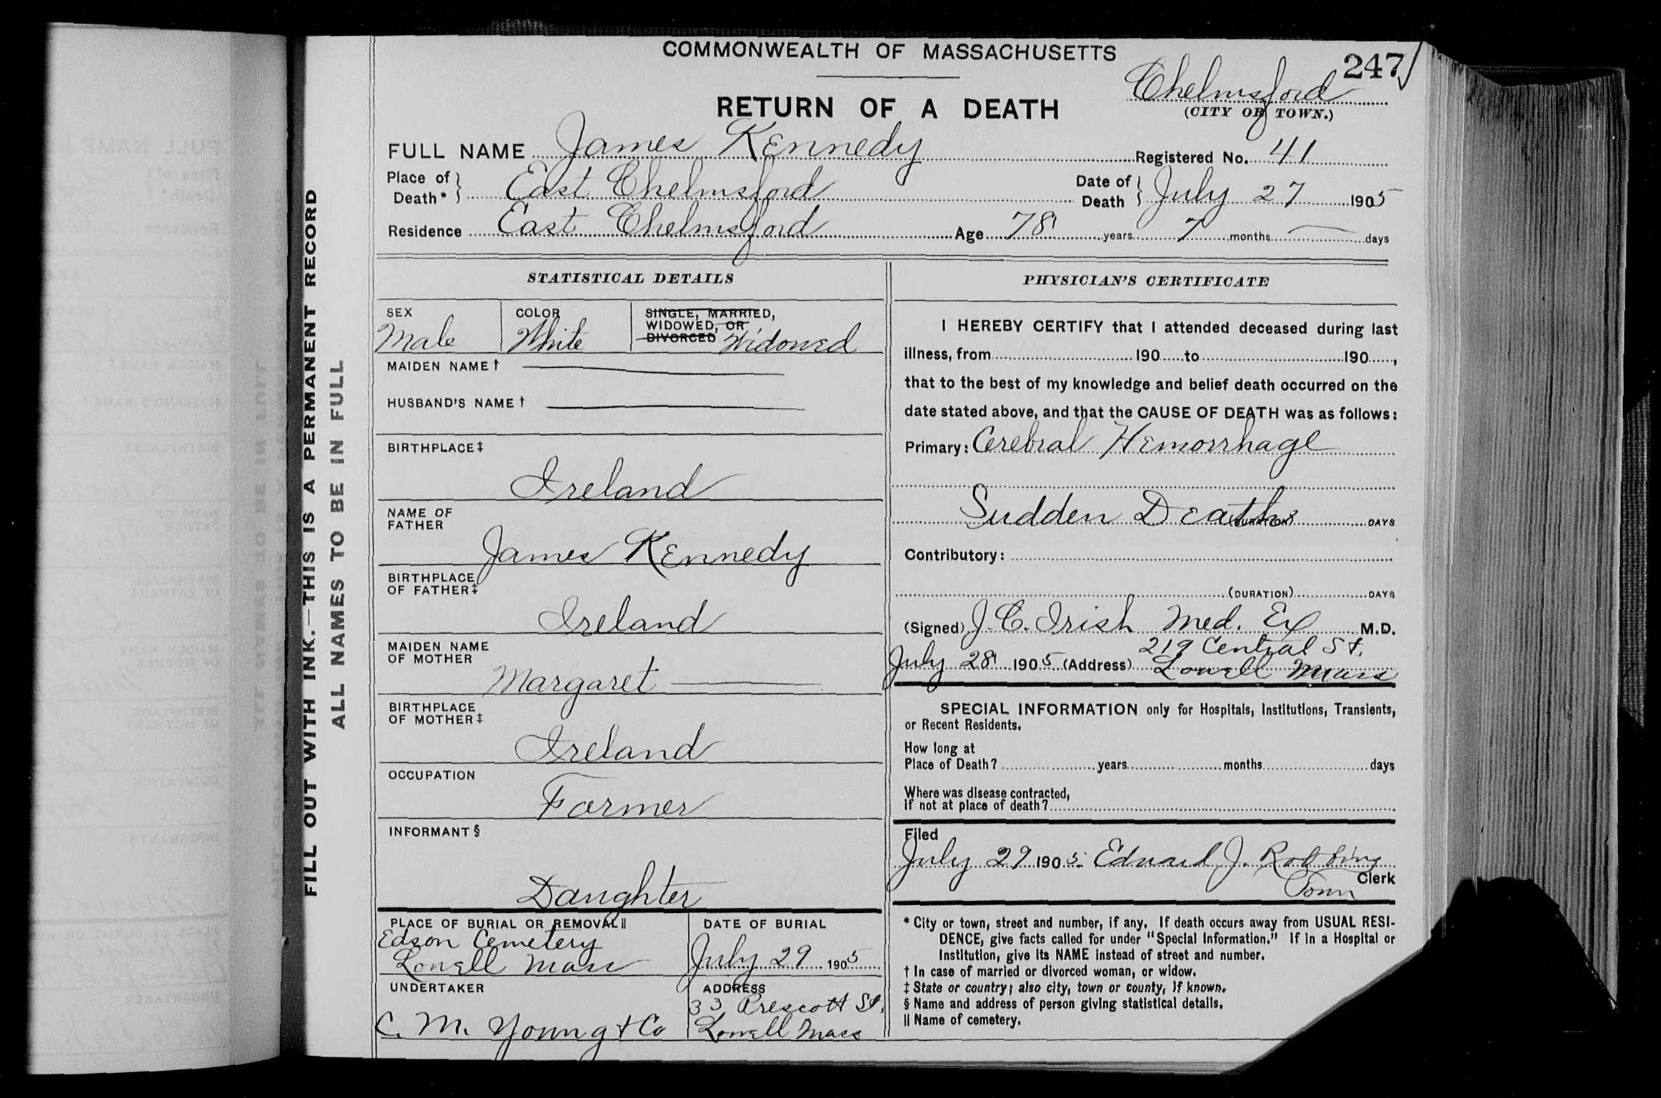 COMMONWEALTH OF MASSACHUSETTS
247
Chelmsford
(CITY OR TOWN.)
RETURN OF A DEATH
FULL NAME James Kennedy Registered No. 41
Place of Death* East Chelmsford Date of Death July 27 1905
Residence East Chelmsford Age 78 years 7 months — days
FILL OUT WITH INK.—THIS IS A PERMANENT RECORD
ALL NAMES TO BE IN FULL
STATISTICAL DETAILS
SEX
Male
COLOR
White
SINGLE, MARRIED,
WIDOWED, OR
DIVORCED Widowed
MAIDEN NAME †
HUSBAND'S NAME †
BIRTHPLACE ‡
Ireland
NAME OF
FATHER
James Kennedy
BIRTHPLACE
OF FATHER ‡
Ireland
MAIDEN NAME
OF MOTHER
Margaret —
BIRTHPLACE
OF MOTHER ‡
Ireland
OCCUPATION
Farmer
INFORMANT §
Daughter
PLACE OF BURIAL OR REMOVAL ||
Edson Cemetery
Lowell Mass
DATE OF BURIAL
July 29 1905
UNDERTAKER
C. M. Young & Co
ADDRESS
33 Prescott St.
Lowell Mass
PHYSICIAN'S CERTIFICATE
I HEREBY CERTIFY that I attended deceased during last
illness, from 190 to 190 ,
that to the best of my knowledge and belief death occurred on the
date stated above, and that the CAUSE OF DEATH was as follows:
Primary: Cerebral Hemorrhage
Sudden Death (DURATION) DAYS
Contributory:
(DURATION) DAYS
(Signed) J. C. Irish Med. Ex M.D.
219 Central St.
July 28 1905 (Address) Lowell Mass
SPECIAL INFORMATION only for Hospitals, Institutions, Transients,
or Recent Residents.
How long at
Place of Death? years months days
Where was disease contracted,
if not at place of death?
Filed
July 29 1905 Edward J. Robbins
Town Clerk
* City or town, street and number, if any. If death occurs away from USUAL RESI-
DENCE, give facts called for under "Special Information." If in a Hospital or
Institution, give its NAME instead of street and number.
† In case of married or divorced woman, or widow.
‡ State or country; also city, town or county, if known.
§ Name and address of person giving statistical details.
|| Name of cemetery.